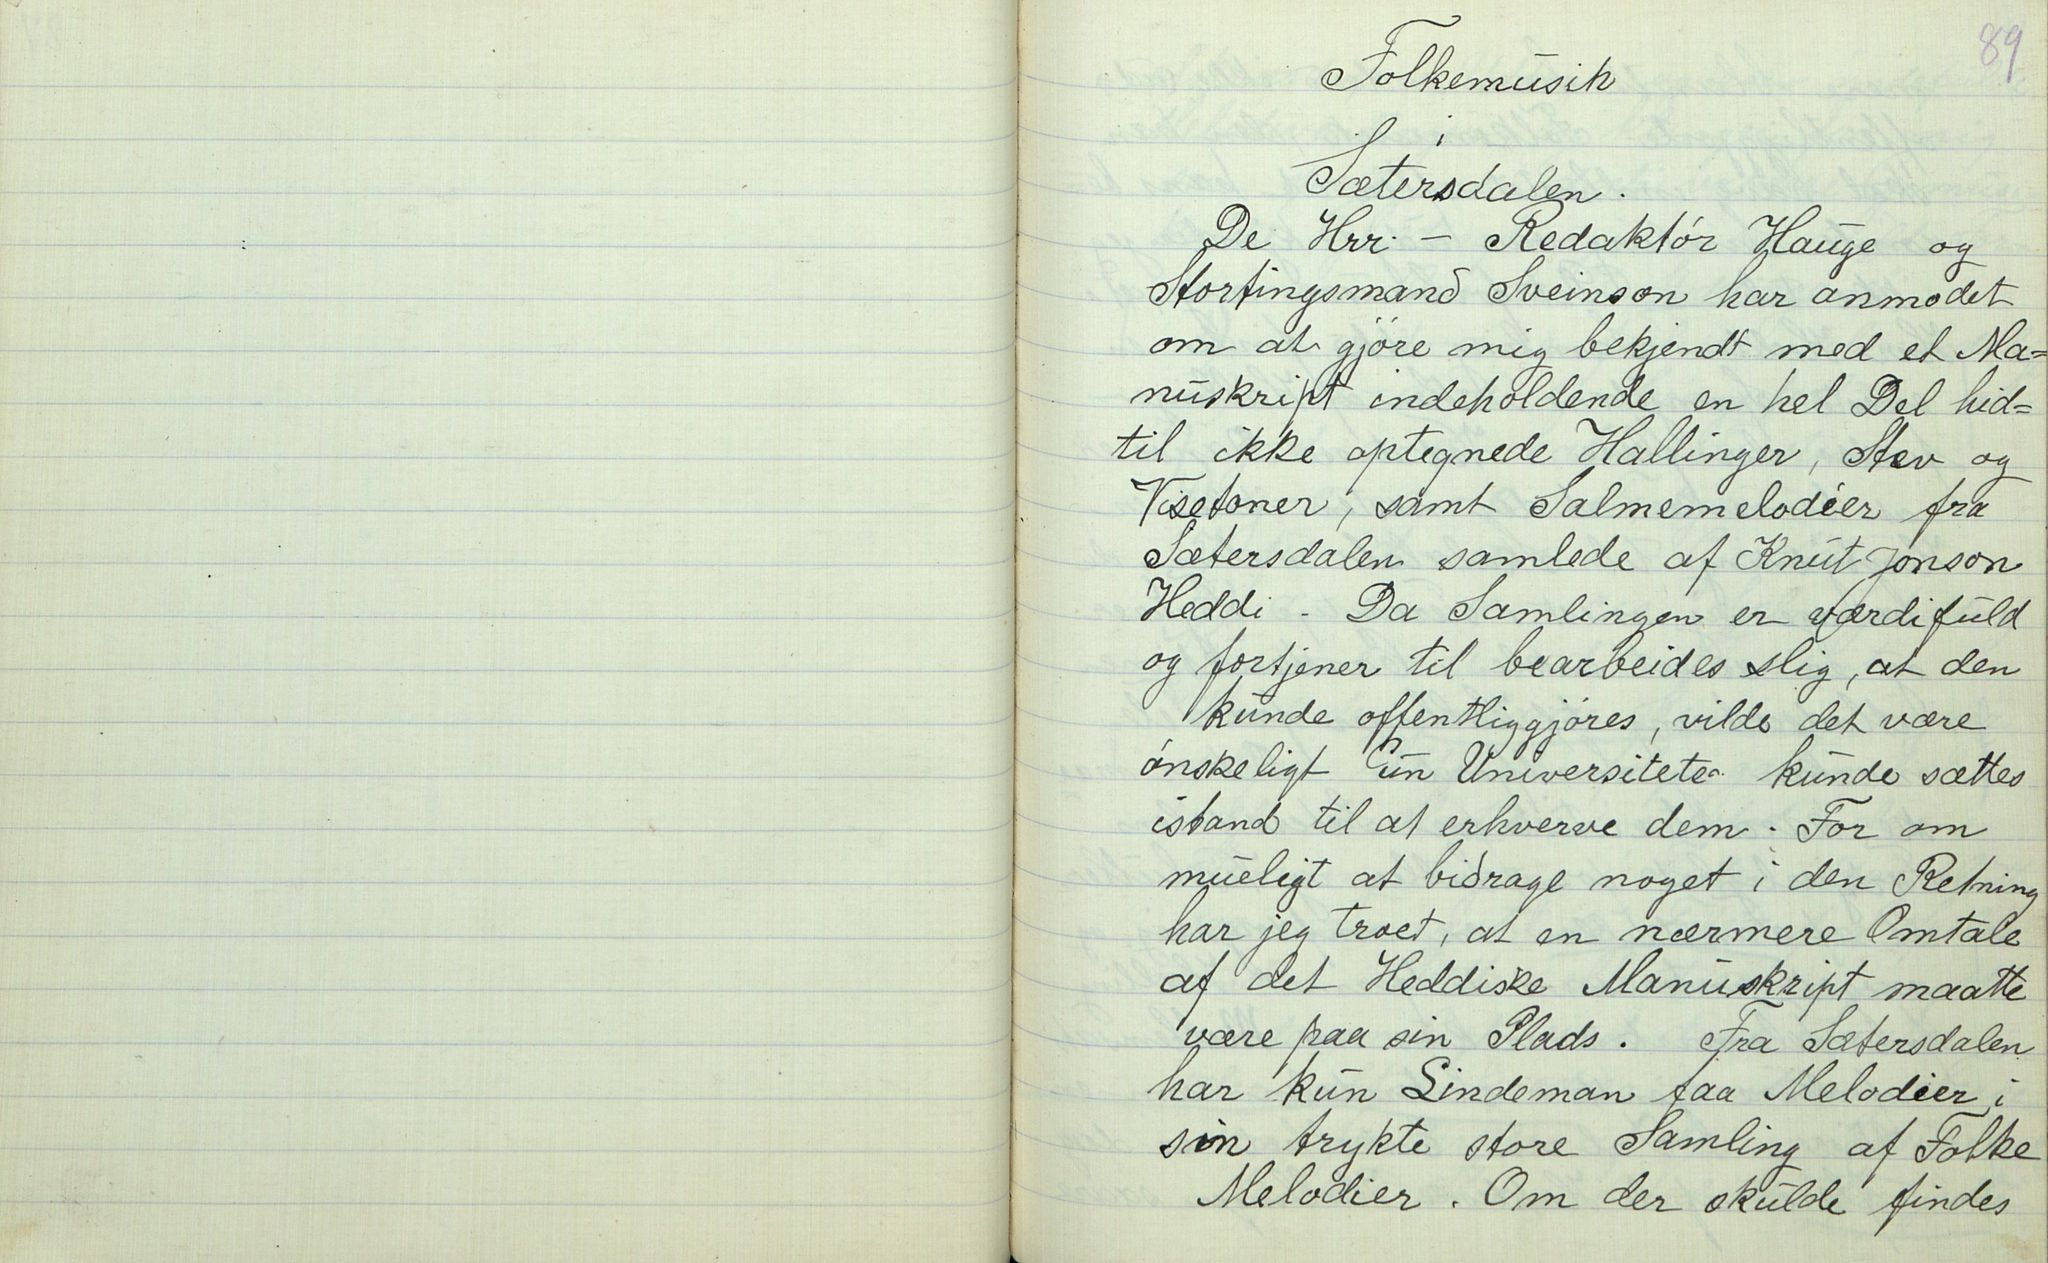 89
Folkemusik
i
Sætersdalen.
De Hrr. – Redaktór Hauge og
Stortingsmand Sveinson har anmodet
om at gjóre mig bekjendt med et Ma=
nuskript indeholdende en hel Del hid=
til ikke optegnede Hallinger, Stev og
Visetoner, samt Salmemelodier fra
Sætersdalen samlede af Knut Jonson
Heddi - Da Samlingen er værdifuld
og fortjener til bearbeides slig, at den
kunde offentliggjóres, vilde det være
ónskeligt Universitetet kunde sættes
istand til at erhverve dem. For om
mueligt at bidrage noget i den Retning
har jeg troet, at en nærmere Omtale
af det Heddiske Manuskript maatte
være paa sin Plads. Fra Sætersdalen
har kun Lindeman faa Melodier i
sin trykte store Samling af Folke
Melodier. Om der skulde findes